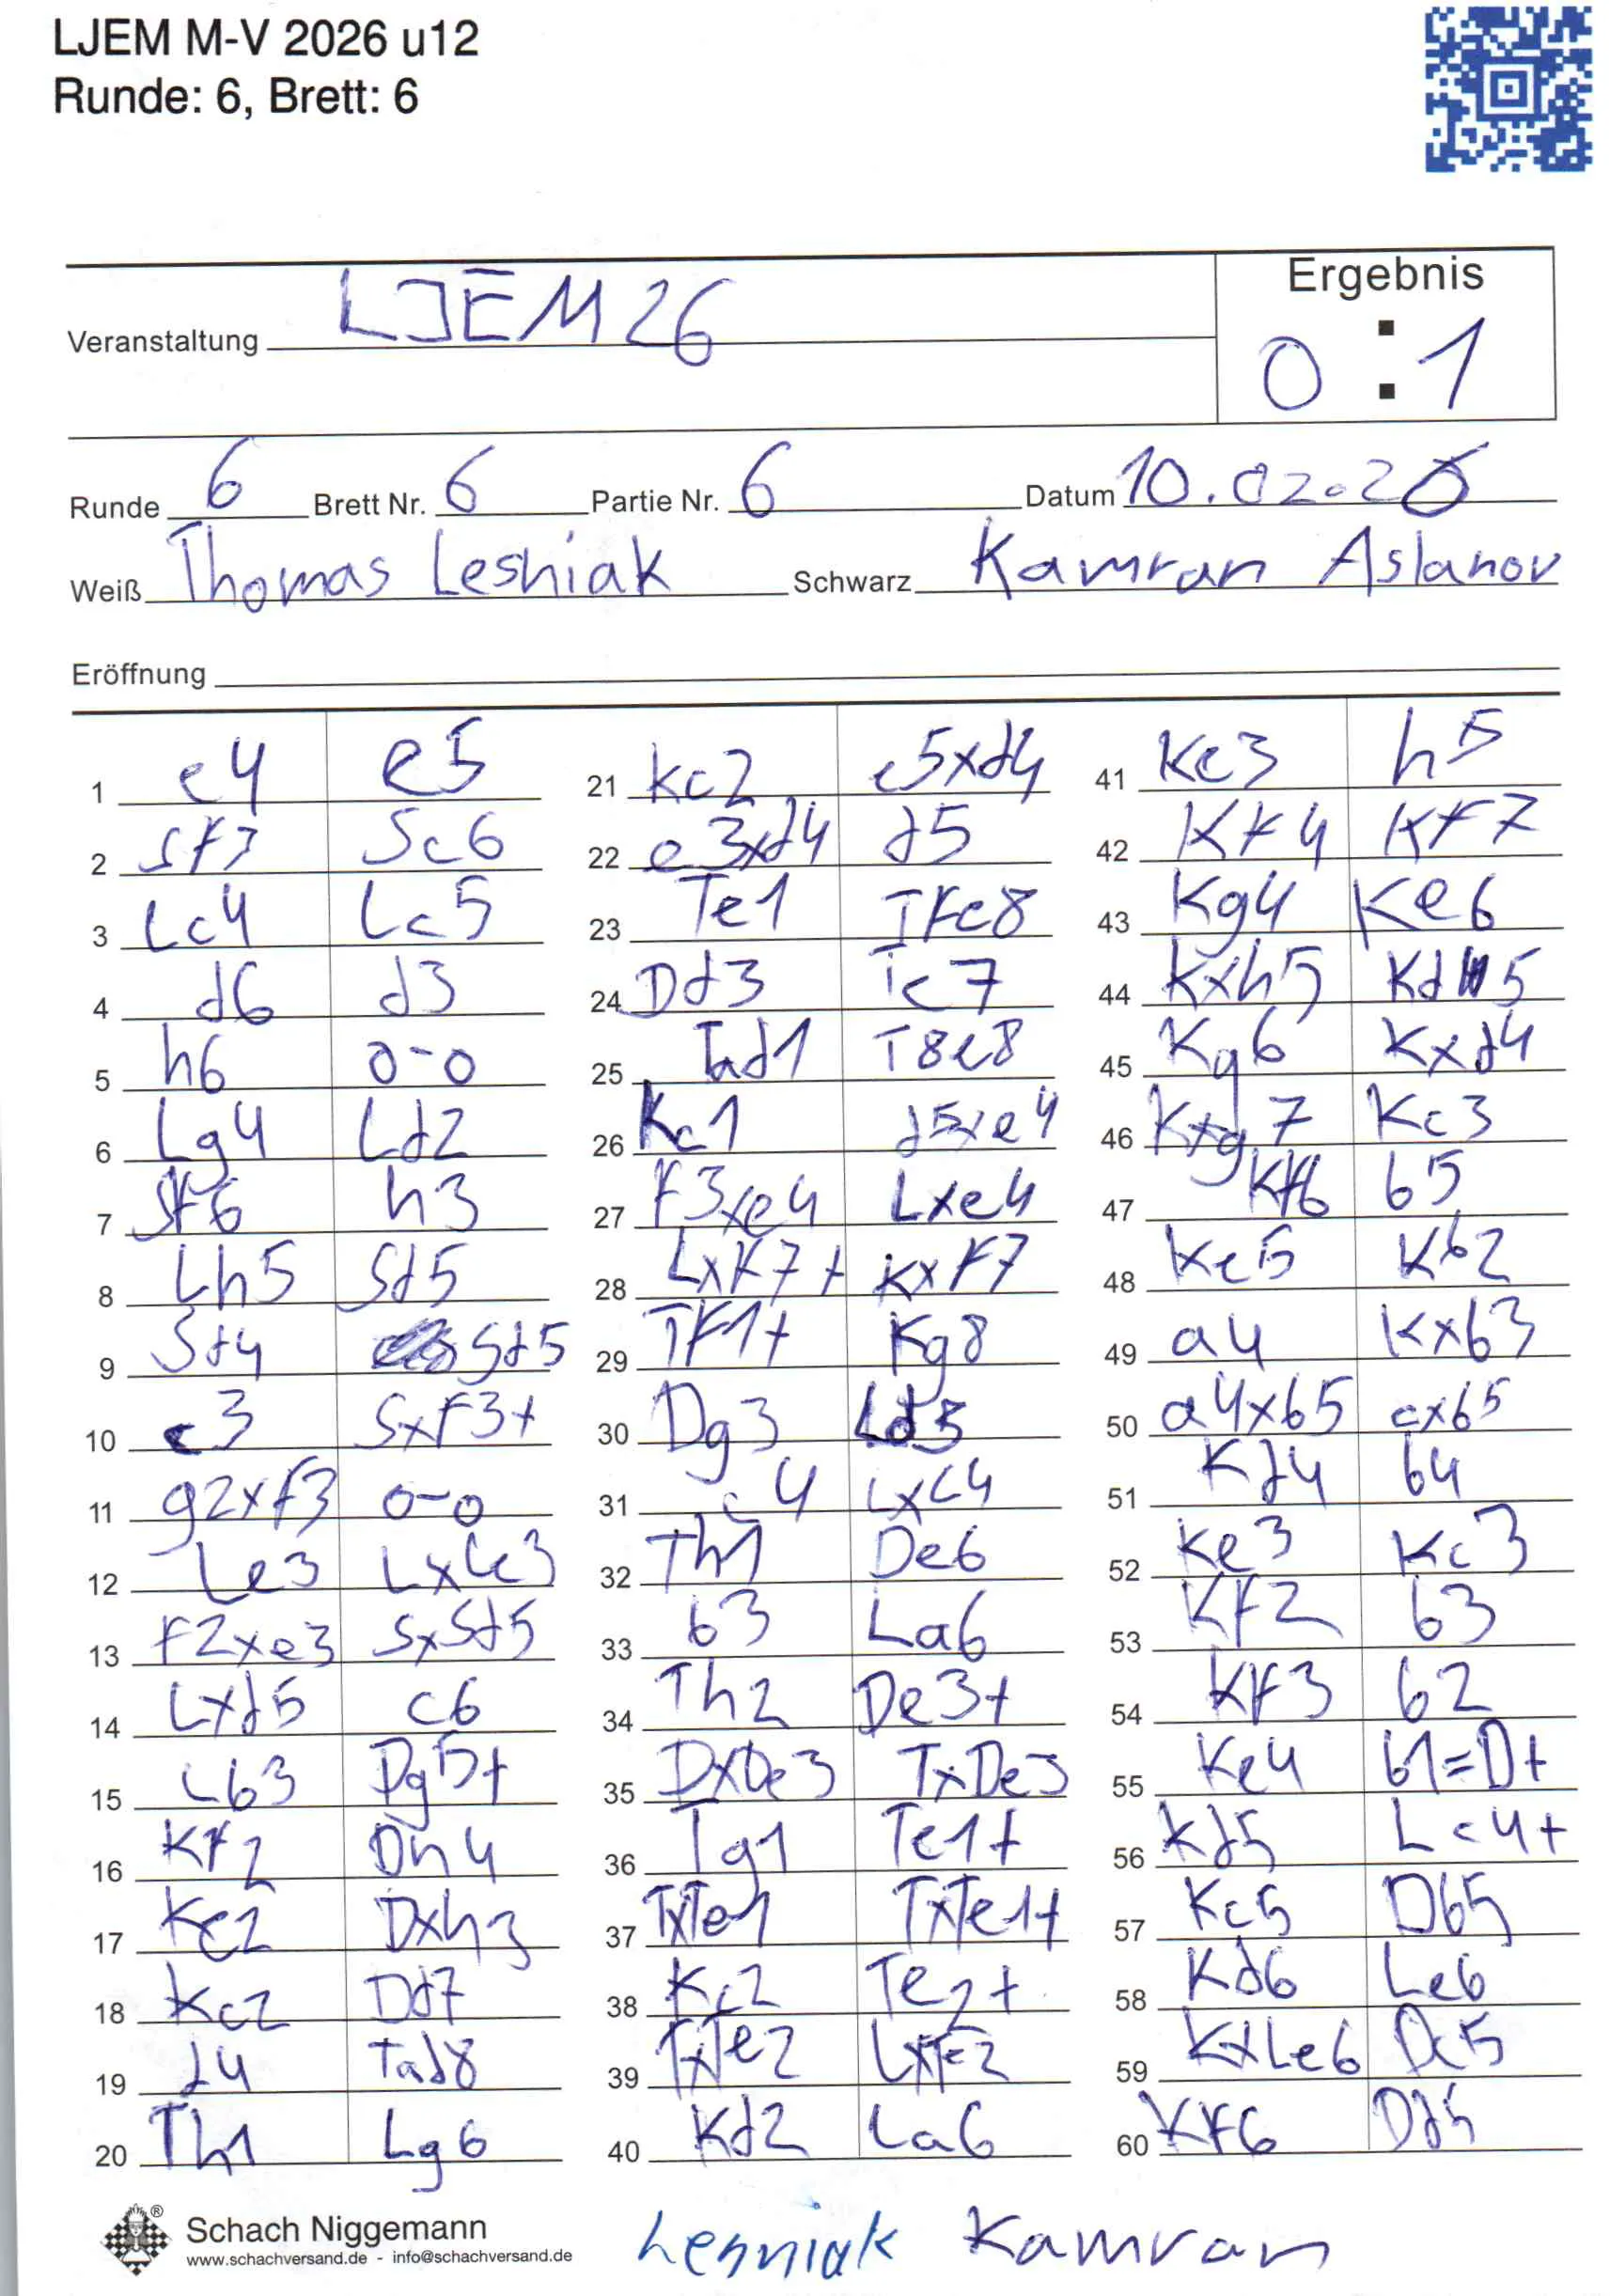 LJEM M-V 2026 u12
Runde: 6, Brett: 6
Ergebnis
Veranstaltung LJEM 26
0 : 1
Runde 6 Brett Nr. 6 Partie Nr. 6 Datum 10.02.26
Weiß Thomas Lesniak Schwarz Kamran Aslanov
Eröffnung
1 e4 e5
2 Sf3 Sc6
3 Lc4 Lc5
4 d6 d3
5 h6 0-0
6 Lg4 Ld2
7 Sf6 h3
8 Lh5 Sd5
9 Sd4 Sd5
10 c3 Sxf3+
11 g2xf3 0-0
12 Le3 LxLe3
13 f2xe3 SxSd5
14 Lxd5 c6
15 Lb3 Dg5+
16 Kf2 Dh4
17 Ke2 Dxh3
18 Kc2 Dd7
19 d4 Tad8
20 Th1 Lg6
21 Kc2 e5xd4
22 e3xd4 d5
23 Te1 Tfe8
24 Dd3 Te7
25 Tad1 T8e8
26 Kc1 d5xe4
27 f3xe4 Lxe4
28 Lxf7+ Kxf7
29 Tf1+ Kg8
30 Dg3 Ld5
31 c4 Lxc4
32 Th1 De6
33 b3 La6
34 Th2 De3+
35 DxDe3 TxDe3
36 Tg1 Te1+
37 TxTe1 TxTe1+
38 Kc2 Te2+
39 TxTe2 LxTe2
40 Kd2 La6
41 Ke3 h5
42 Kf4 Kf7
43 Kg4 Ke6
44 Kxh5 Kd5
45 Kg6 Kxd4
46 Kxg7 Kc3
47 Kf6 b5
48 Ke5 Kb2
49 a4 Kxb3
50 a4xb5 cxb5
51 Kd4 b4
52 Ke3 Kc3
53 Kf2 b3
54 Kf3 b2
55 Ke4 b1=D+
56 Kd5 Lc4+
57 Kc5 Db5
58 Kd6 Le6
59 KxLe6 Dc5
60 Kf6 Dd5
Schach Niggemann
www.schachversand.de - info@schachversand.de
Lesniak Kamran